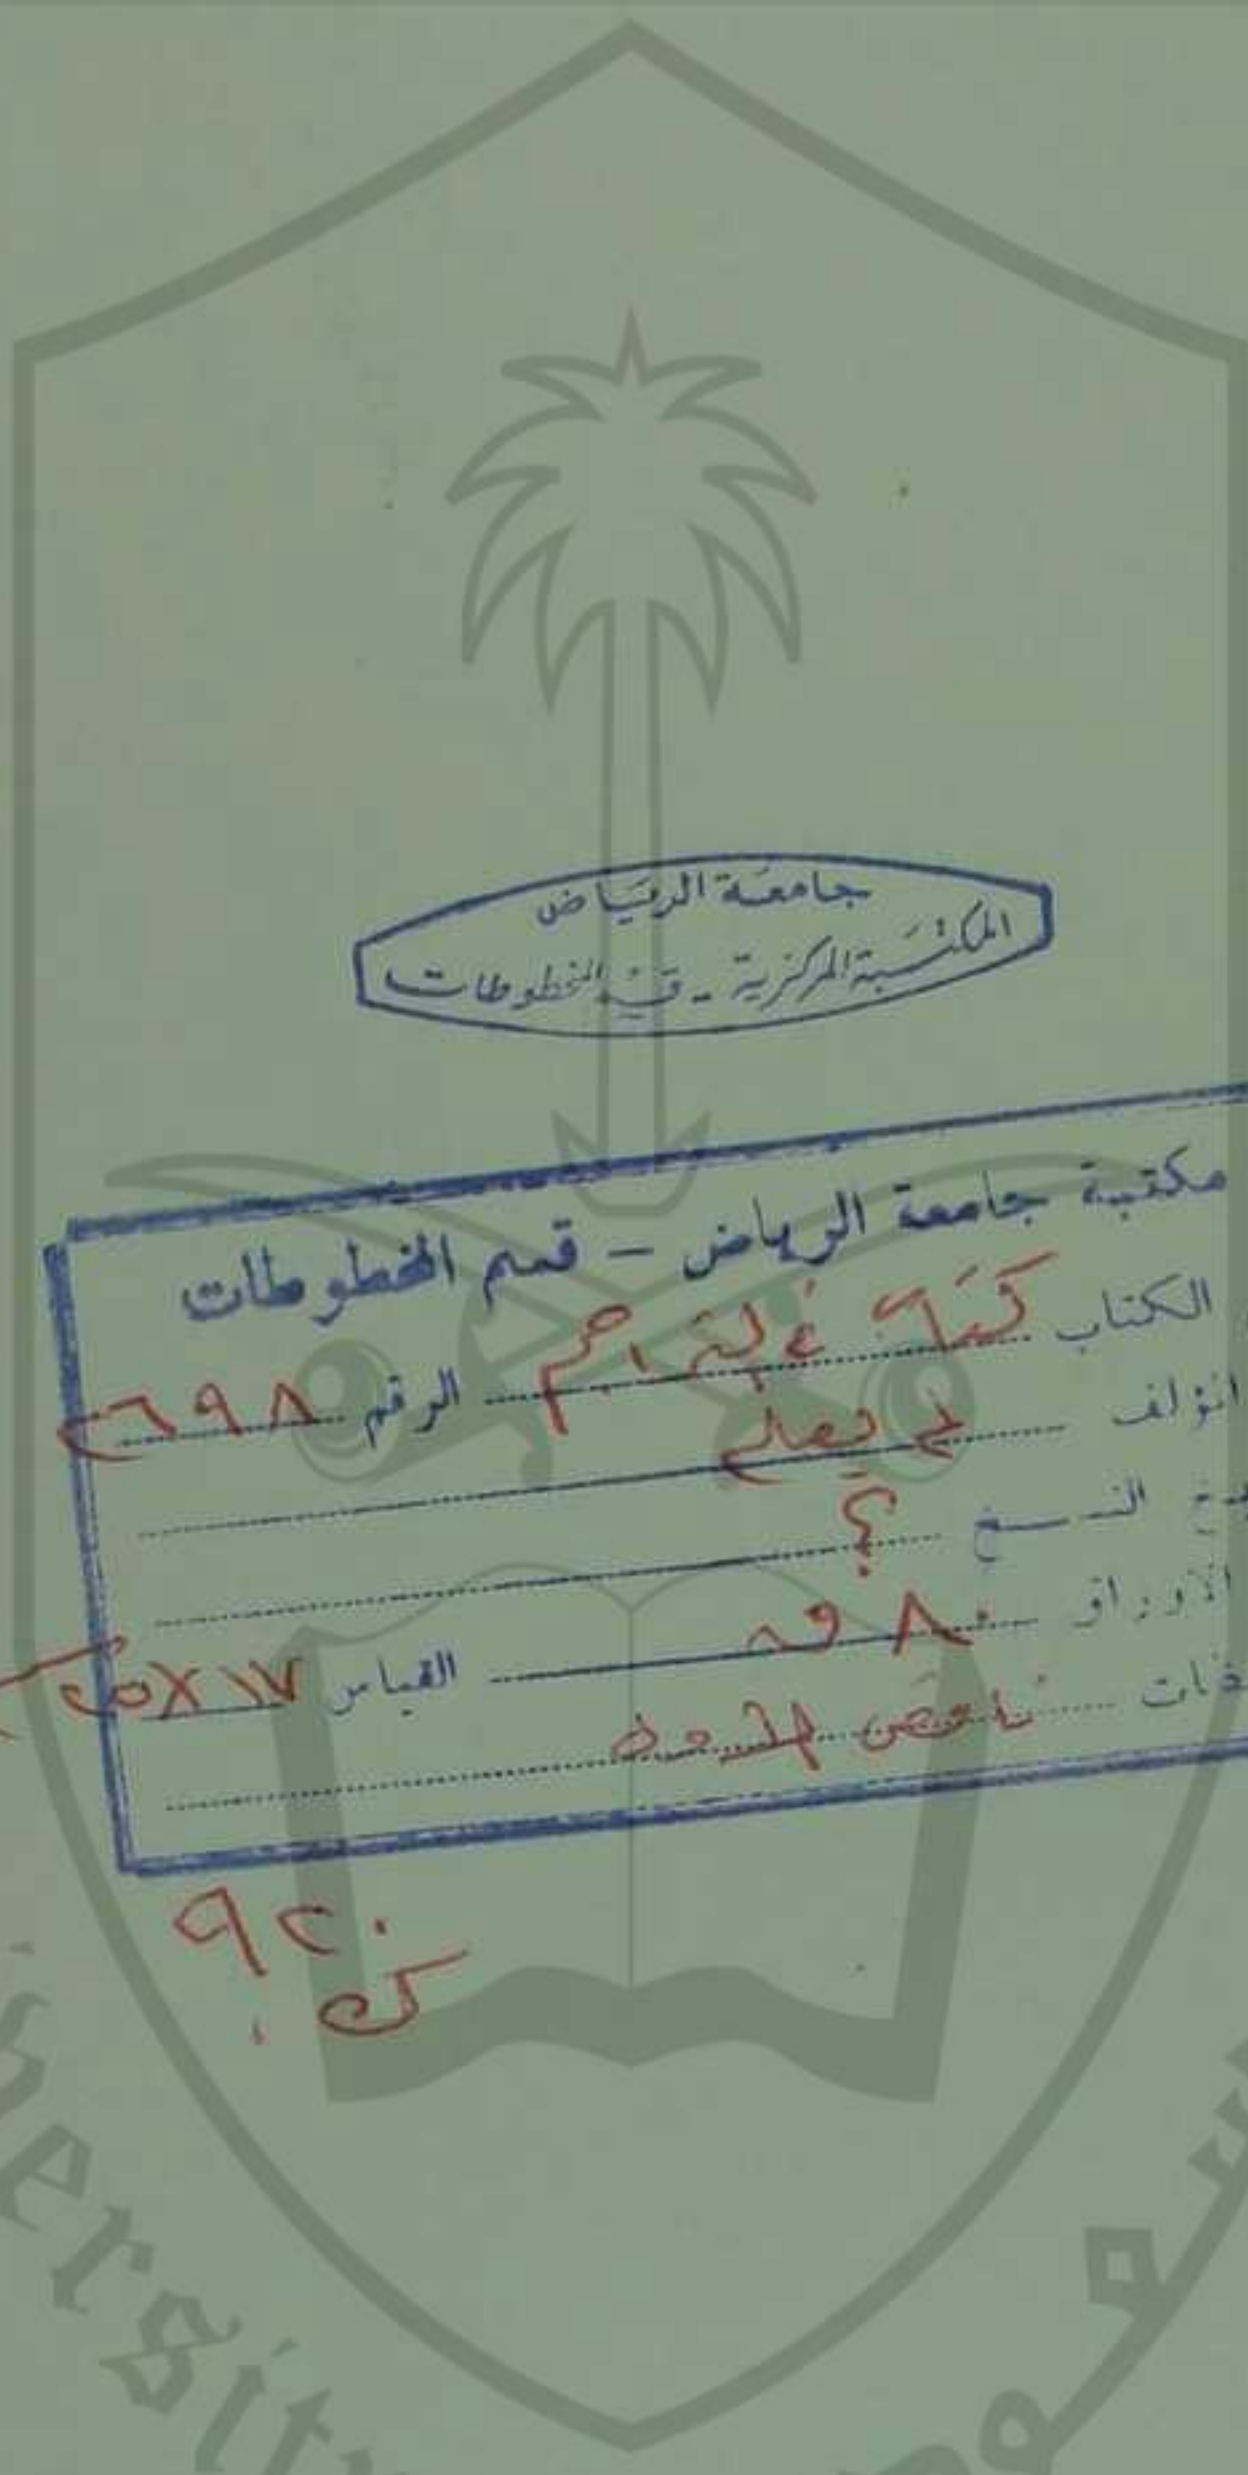 جامعة الرياض
المكتبة المركزية - قسم المخطوطات
مكتبة جامعة الرياض - قسم المخطوطات
الكتاب كتاب في التراجم الرقم ٢٦٩٨
المؤلف لم يعلم
النسخ ؟
الأوراق ٨٠ ق القياس ١٧X٢٥
ناقص الأول
٩٢٠
ك